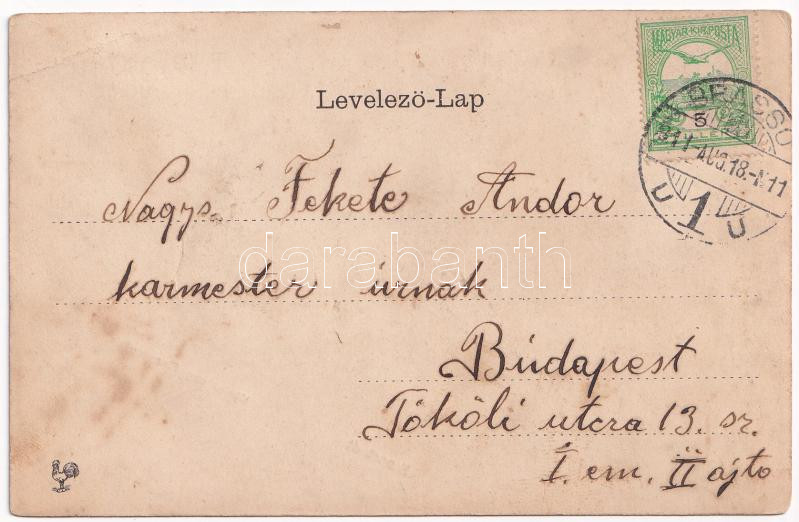 MAGYAR·KIR·POSTA
Levelező-Lap
5
BRASSÓ
911 AUG. 18.-N 11
U 1 U
Nagys. Fekete Andor
darabanth
karmester úrnak
Budapest
Tököli utcza 13. sz.
I. em. II ajto